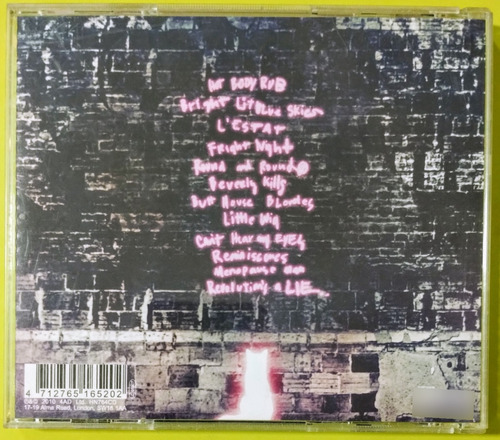 Hot Body Rub
Bright Lit Blue Skies
L'ESTAT
Fright Night
Round and Round
Beverly Kills
Butt House Blondes
Little Wig
Can't Hear my EYES
Reminiscences
Menopause man
Revolution's a LIE
4 712765 165202
2010 4AD Ltd
17-19 Alma Road, London, SW18 1AA